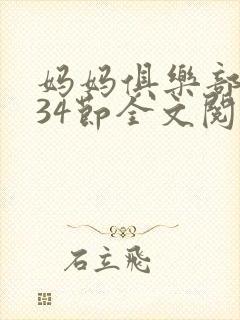 妈妈俱樂部
34節全文閱
石立飛